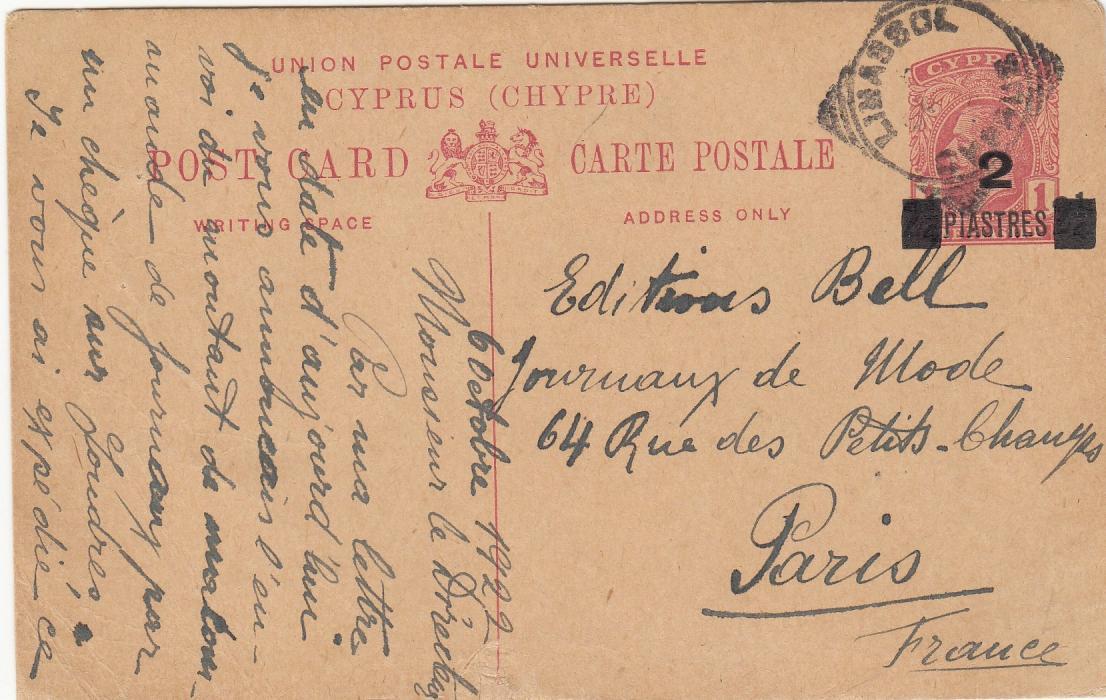 UNION POSTALE UNIVERSELLE
CYPRUS (CHYPRE)
POST CARD CARTE POSTALE
WRITING SPACE
ADDRESS ONLY
LIMASSOL
CYPRUS
CYPRUS
2
1
PIASTRES
Editions Bell
Journaux de Mode
64 Rue des Petits-Champs
Paris
France
6 Octobre 1922
Monsieur le Directeur
Par ma lettre
en date d'aujourd'hui
je vous annonçais l'en-
voi du montant de ma
mande de journaux par
un chèque sur Londres
Je vous ai expédié ce